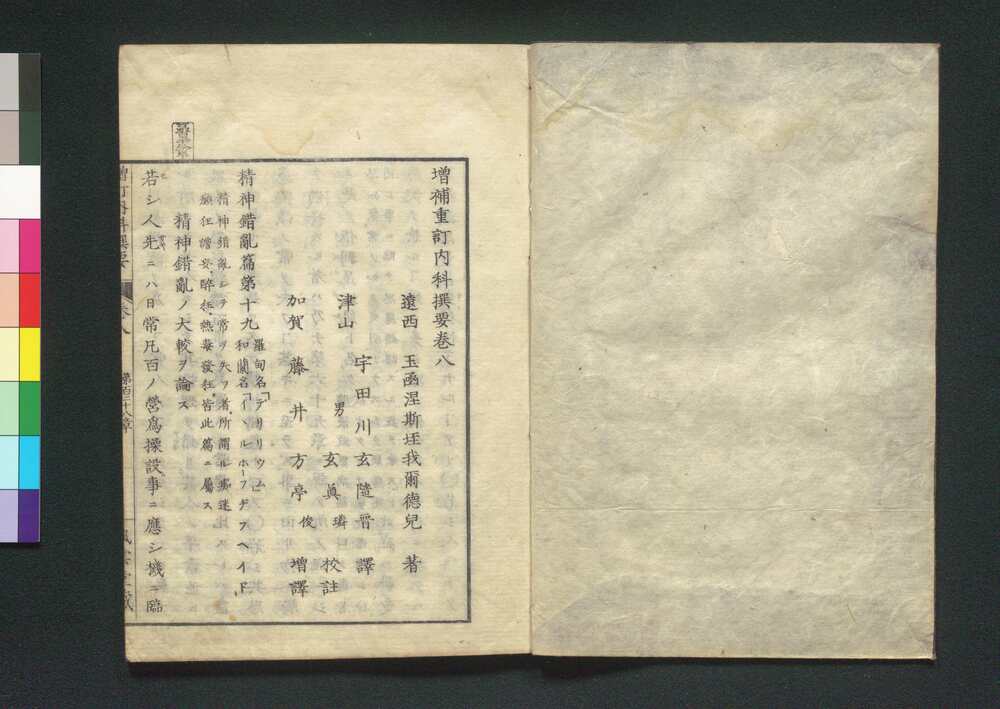 増補重訂内科撰要巻八
遠西 玉函涅斯垤我爾徳兒 著
津山 宇田川玄隨晋 譯
男 玄眞璘 校註
加賀 藤井方亭俊 増譯
精神錯亂篇第十九 羅甸名「デリリウム」
和蘭名「イールホーフデフヘイド
精神錯亂シテ常ヲ失フ者所謂
癲狂譫妄醉狂熱毒發狂皆此篇ニ屬ス
精神錯亂ノ大較ヲ論ス
若シ人先ニハ日常凡百ノ營爲操設事ニ應シ機ニ臨
増訂内科撰要
巻八